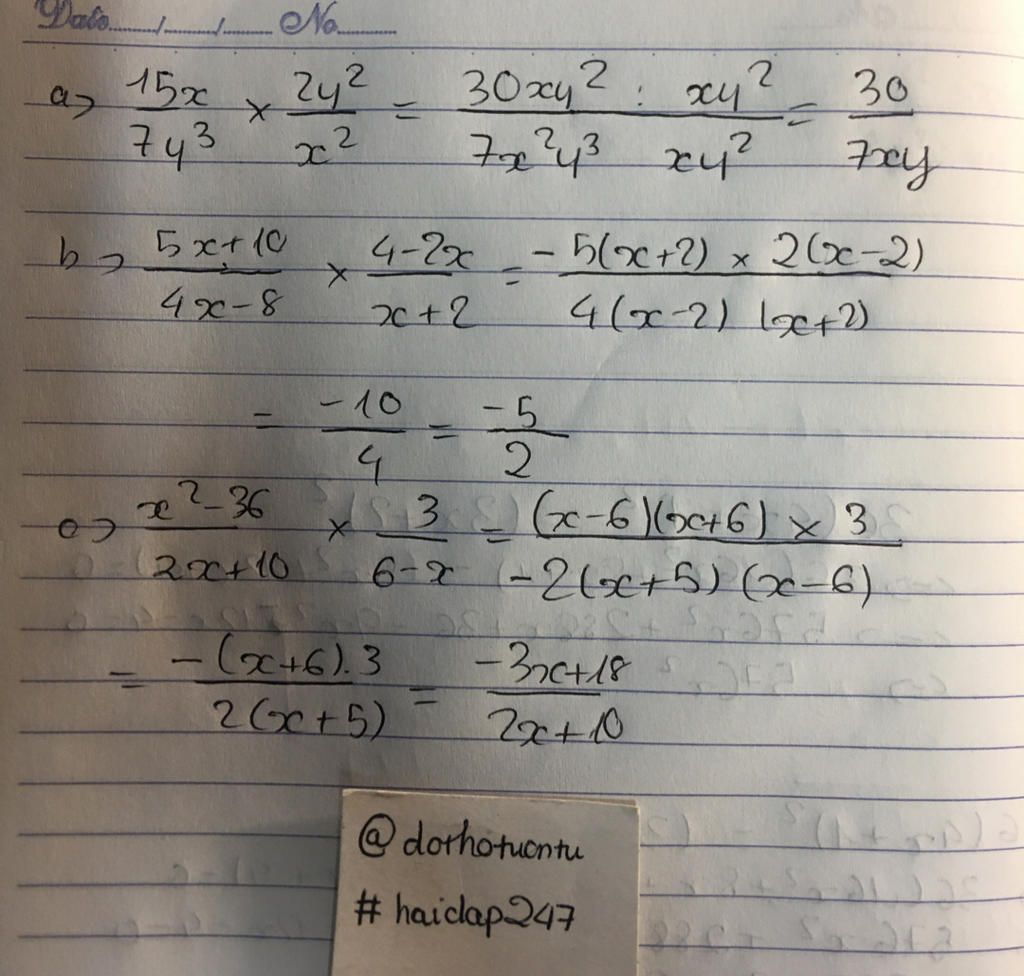 Date....../....../...... No..........
a> 15x/7y³ × 2y²/x² = 30xy² : xy² / 7x²y³ xy² = 30/7xy
b> 5x+10/4x-8 × 4-2x/x+2 = -5(x+2) × 2(x-2) / 4(x-2) (x+2)
= -10/4 = -5/2
c> x²-36/2x+10 × 3/6-x = (x-6)(x+6) × 3 / -2(x+5) (x-6)
= -(x+6).3 / 2(x+5) = -3x+18 / 2x+10
@dothotuontu
# haidap247